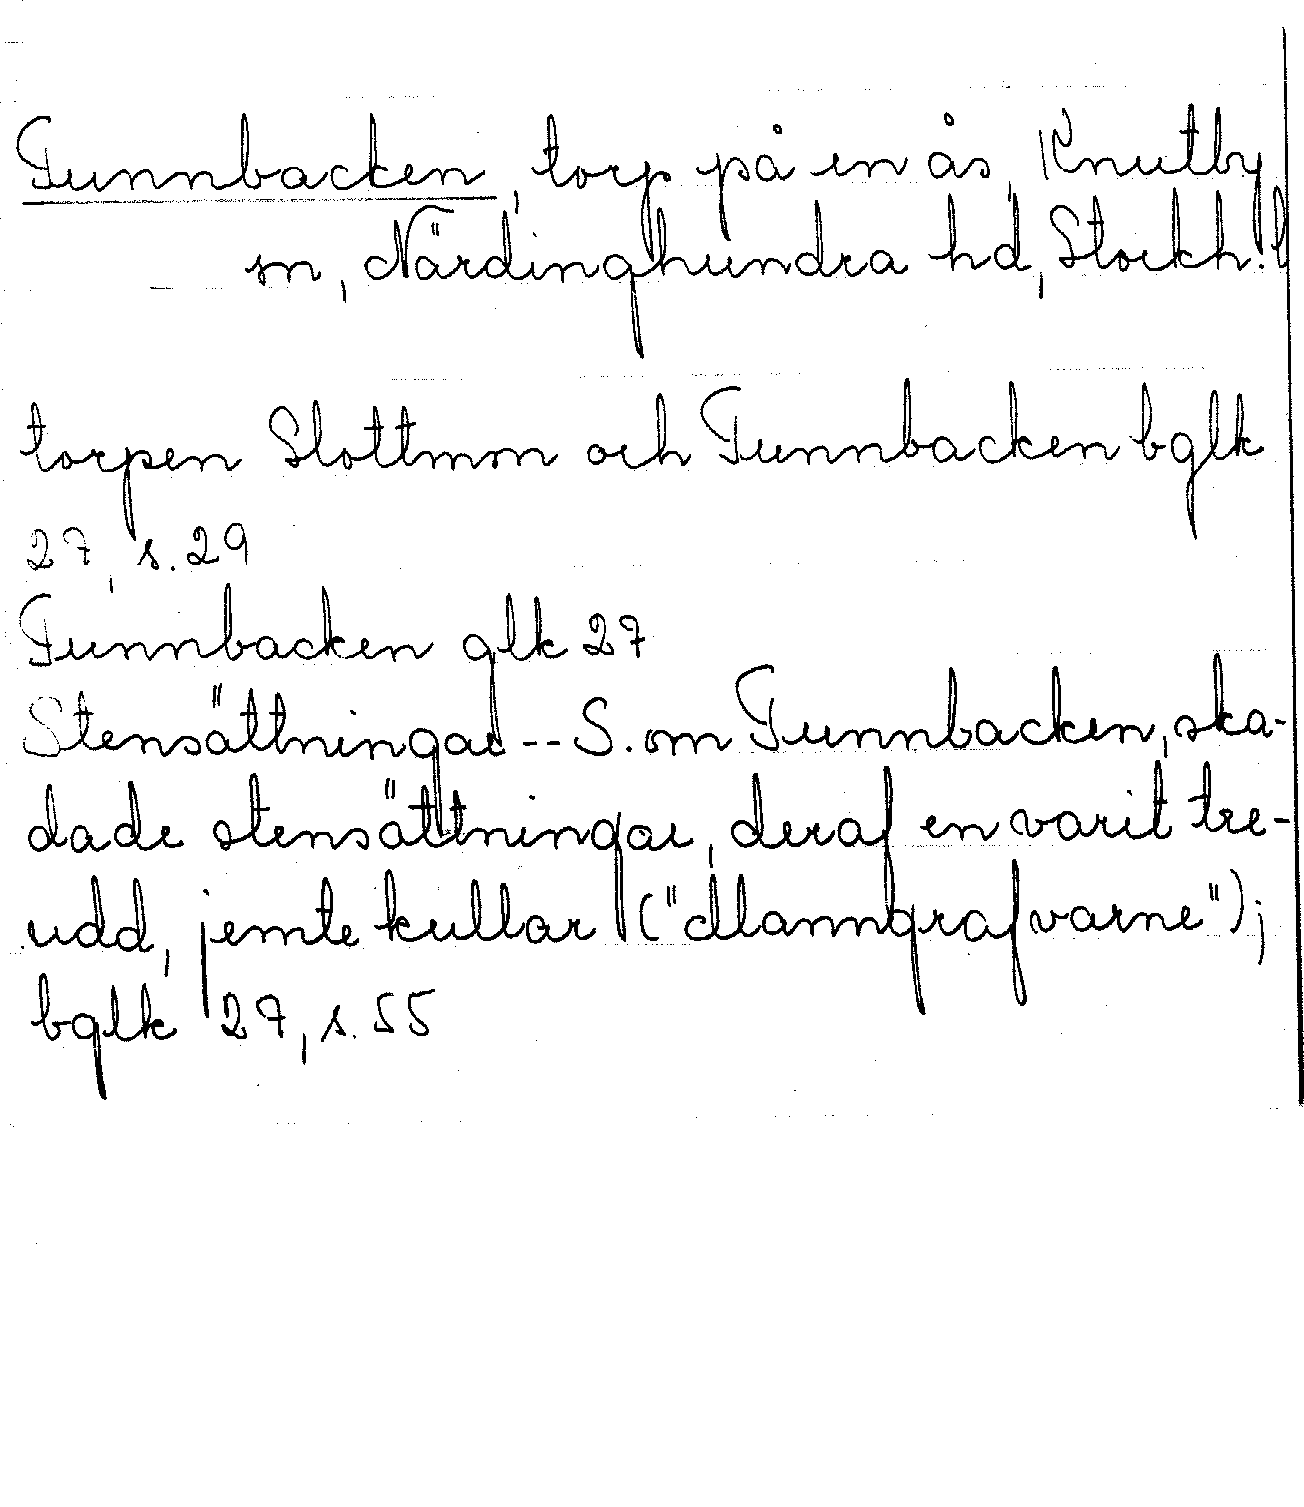 Tunnbacken, torp på en ås, Knutby
sn, Närdinghundra hd, Stockh. l
torpen Slottmon och Tunnbacken bglk
27, s. 29
Tunnbacken glk 27
Stensättningar -- S. om Tunnbacken, ska-
dade stensättningar, deraf en varit tre-
udd, jemte kullar ("Manngrafvarne");
bglk 27, s. 55